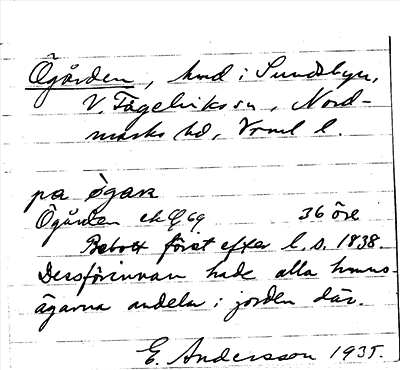 Ögården, hmd i Sundsbyn,
V. Fågelviks sn, Nord-
marks hd, Vrml l.
pa øgaɴ
Ögården 69 36 öre
Bebott först efter l. s. 1838.
Dessförinnan hade alla hmns-
ägarna andelar i jorden där.
E. Andersson 1935.